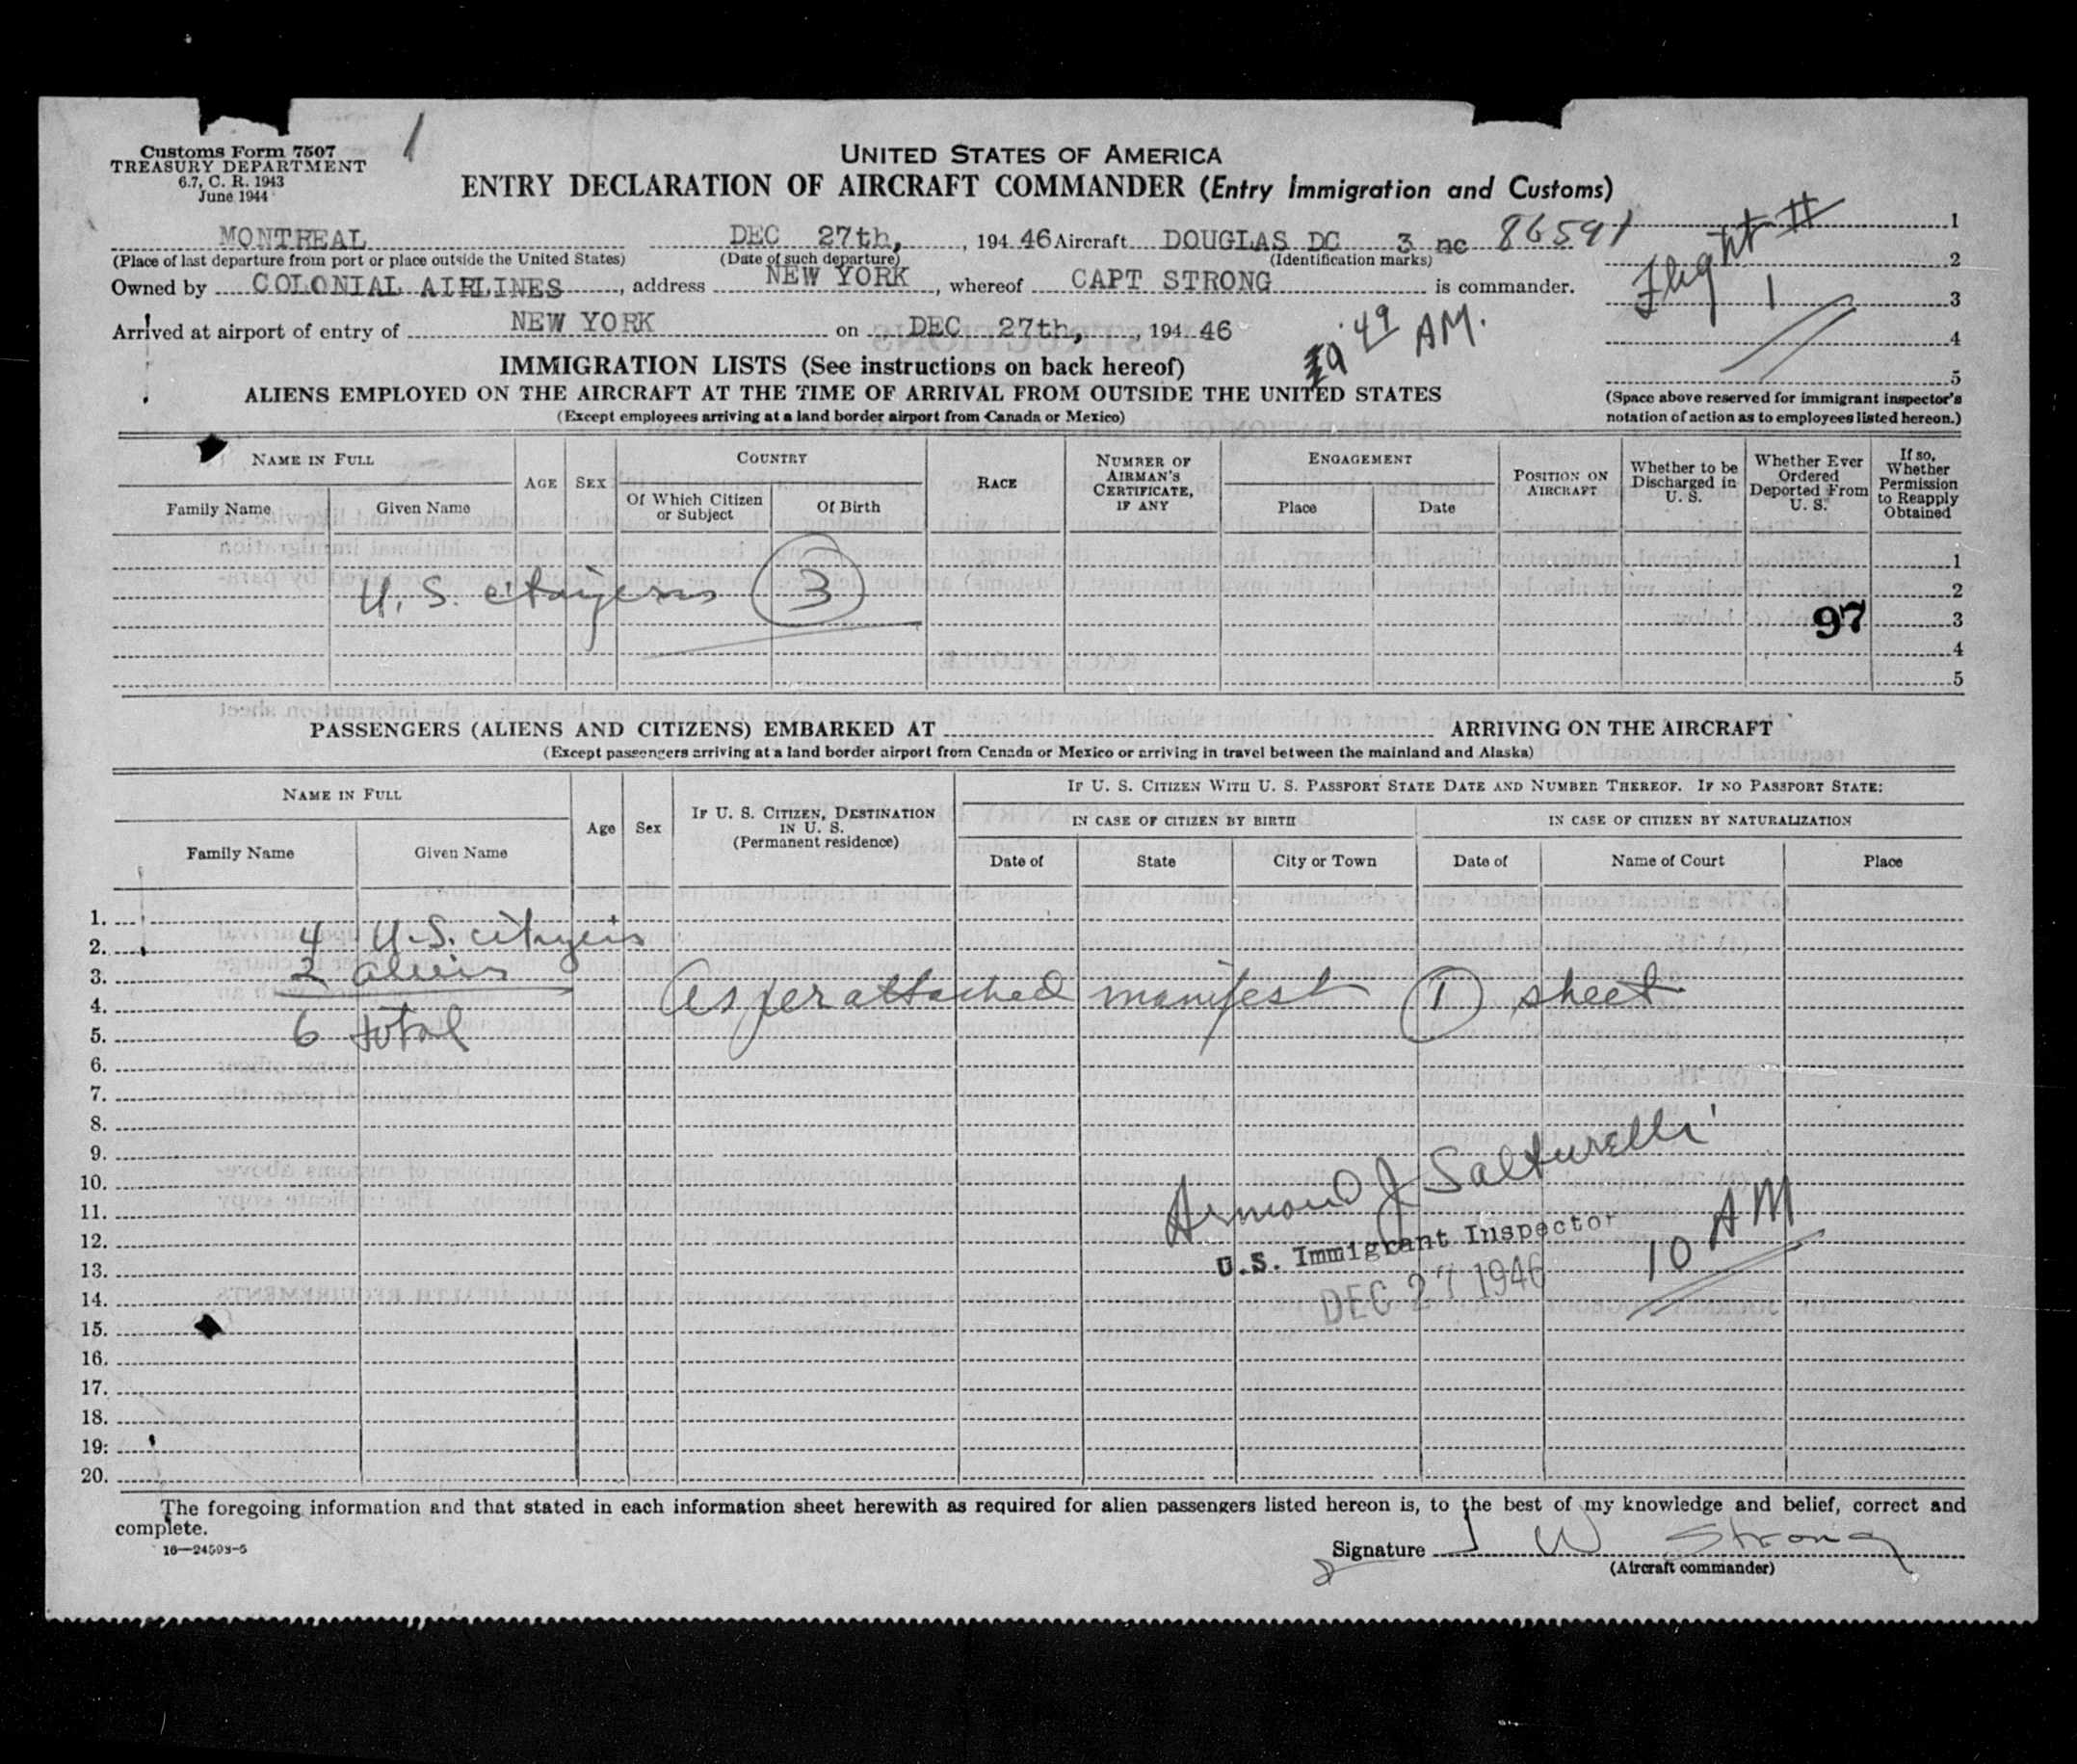 1
Customs Form 7507
TREASURY DEPARTMENT
6.7, C. R. 1943
June 1944
UNITED STATES OF AMERICA
ENTRY DECLARATION OF AIRCRAFT COMMANDER (Entry Immigration and Customs)
MONTREAL DEC 27th, , 194 46 Aircraft DOUGLAS DC 3 nc 86591
(Place of last departure from port or place outside the United States) (Date of such departure) (Identification marks)
Owned by COLONIAL AIRLINES, address NEW YORK, whereof CAPT STRONG is commander.
Arrived at airport of entry of NEW YORK on DEC 27th, , 194 46
9 49 AM.
Flight #
1
1
2
3
4
5
(Space above reserved for immigrant inspector's
notation of action as to employees listed hereon.)
IMMIGRATION LISTS (See instructions on back hereof)
ALIENS EMPLOYED ON THE AIRCRAFT AT THE TIME OF ARRIVAL FROM OUTSIDE THE UNITED STATES
(Except employees arriving at a land border airport from Canada or Mexico)
NAME IN FULL
Family Name Given Name
AGE SEX
COUNTRY
Of Which Citizen or Subject Of Birth
RACE
NUMBER OF AIRMAN'S CERTIFICATE, IF ANY
ENGAGEMENT
Place Date
POSITION ON AIRCRAFT
Whether to be Discharged in U. S.
Whether Ever Ordered Deported From U. S.
If so, Whether Permission to Reapply Obtained
1
U. S. citizens 3 2
97 3
4
5
PASSENGERS (ALIENS AND CITIZENS) EMBARKED AT ARRIVING ON THE AIRCRAFT
(Except passengers arriving at a land border airport from Canada or Mexico or arriving in travel between the mainland and Alaska)
NAME IN FULL
Family Name Given Name
Age Sex
IF U. S. CITIZEN, DESTINATION IN U. S.
(Permanent residence)
IF U. S. CITIZEN WITH U. S. PASSPORT STATE DATE AND NUMBER THEREOF. IF NO PASSPORT STATE:
IN CASE OF CITIZEN BY BIRTH IN CASE OF CITIZEN BY NATURALIZATION
Date of State City or Town Date of Name of Court Place
1.
2. 4 U.S. citizens
3. 2 aliens
4. As per attached manifest 1 sheet
5. 6 total
6.
7.
8.
9.
10.
11.
12.
13.
14.
15.
16.
17.
18.
19.
20.
Armond J Salturelli
U.S. Immigrant Inspector
10 AM
DEC 27 1946
The foregoing information and that stated in each information sheet herewith as required for alien passengers listed hereon is, to the best of my knowledge and belief, correct and
complete.
16—24503-5
Signature J W Strong
(Aircraft commander)